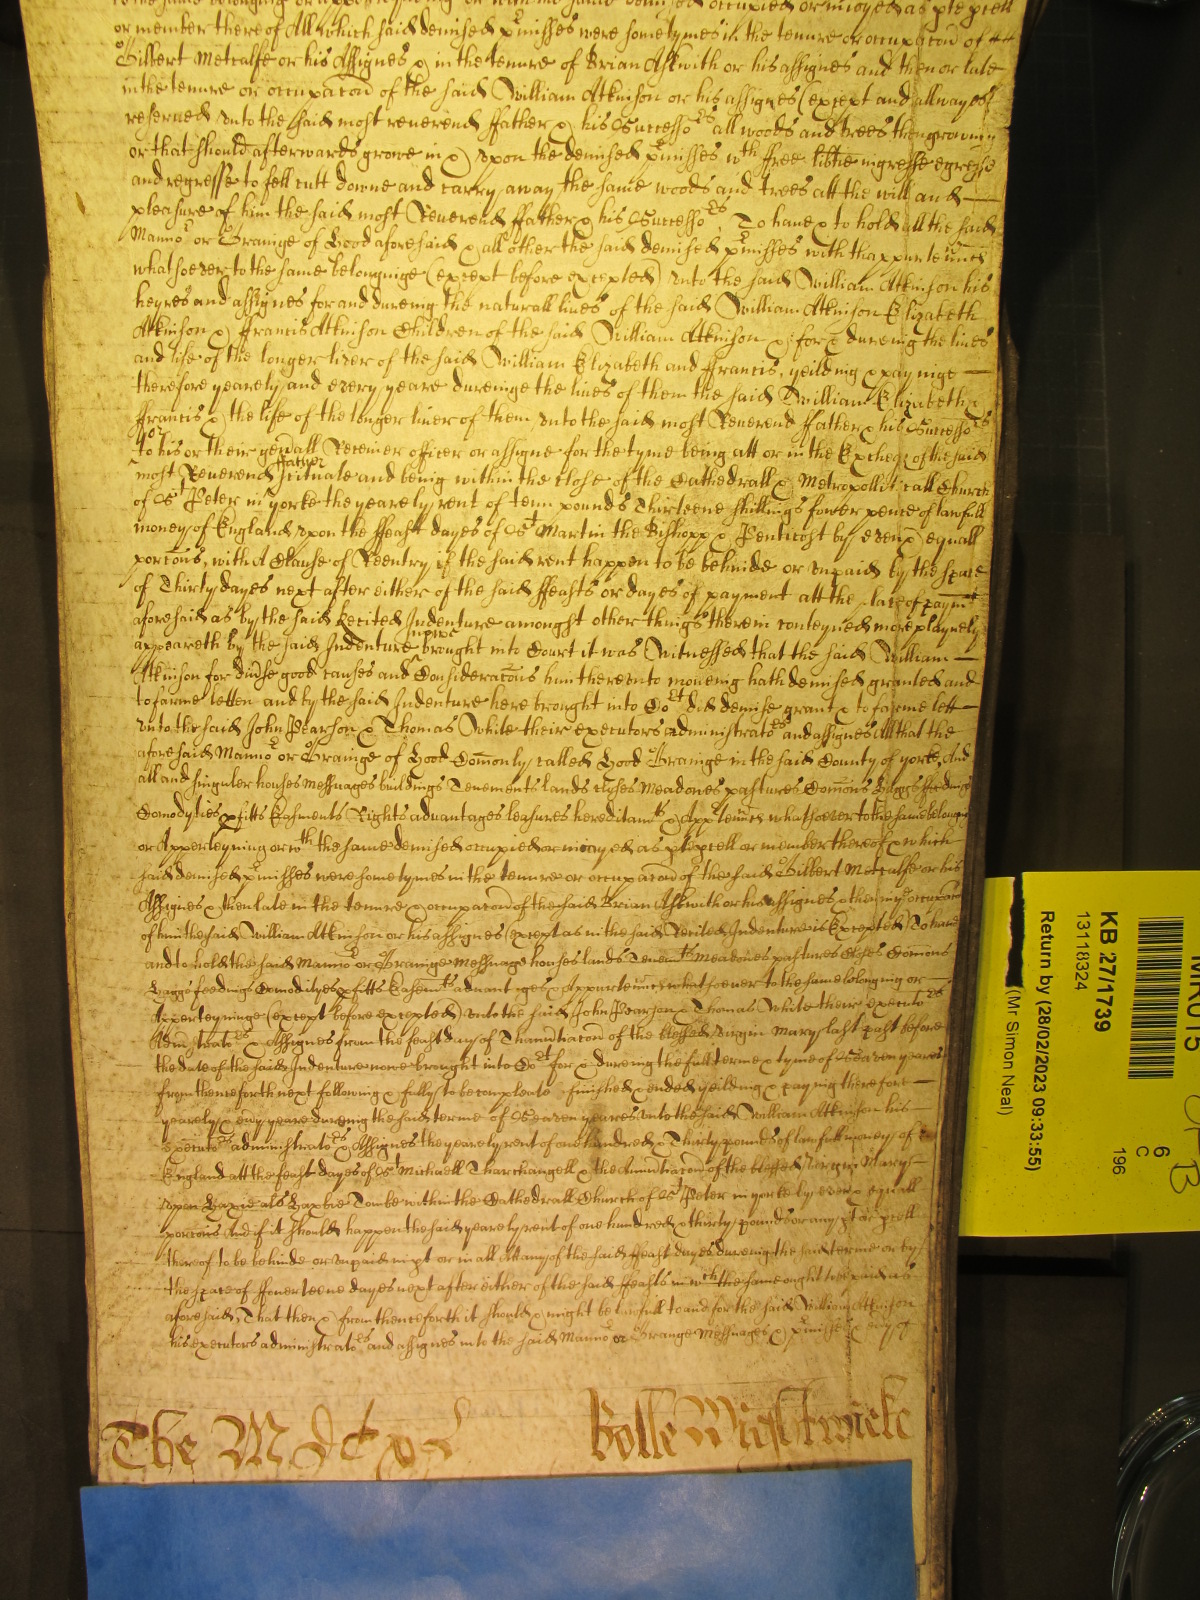 or member thereof All which said demised p̱misses were sometymes in the tenure or occupac̃on of
Gilbert Metcalfe or his Assignes & in the tenure of Brian Askwith or his assignes and then or late
in the tenure or occupac̃on of the said William Atkinson or his assignes (except and allwayes
reserved unto the said most reverend ffather & his Successors all woods and trees then growing
or that should afterwards growe in & upon the demised p̱misses wth free lib̃tie ingresse egresse
and regresse to fell cutt downe and carry away the same woods and trees att the will and
pleasure of him the said most Reverend ffather & his Successors, To have & to hold all the said
Mannor or Grainge of Good aforesaid & all other the said demised p̱misses with thappurtenn̄ces
whatsoever to the same belonginge (except before excepted) unto the said William Atkinson his
heyres and assignes for and dureing the naturall lives of the said William Atkinson Elizabeth
Atkinson & Francis Atkinson Children of the said William Atkinson & for & dureing the lives
and life of the longer liver of the said William Elizabeth and ffrancis, yeilding & payinge
therefore yearely and every yeare dureinge the lives of them the said William Elizabeth &
ffrancis & the life of the longer liver of them unto the said most Reverend ffather & his Successors
or to his or their gen̄all Receiver officer or assigne for the tyme being att or in the Excheqr of the said
most Reverend ffather scituate and being within the close of the Cathedrall & Metropolliticall Church
of St Peter in yorke the yearely rent of tenn pounds Thirteene shillings fower pence of lawfull
money of England upon the ffeast dayes of St Martin the Bishopp & Penticost by even & equall
porc̃ons, with A Clause of Reentry if the said rent happen to be behinde or unpaid by the space
of Thirty dayes next after either of the said ffeasts or dayes of payment att the place of paymt
aforesaid as by the said Recited Indenture amongst other things therein conteyned more playnely
appeareth by the said Indenture nowe brought into Court it was Witnessed that the said William
Atkinson for div̄se good causes and Considerac̃ons him thereunto moveing hath demised granted and
to farme letten and by the said Indenture here brought into Cort did demise grant & to farme lett
unto the said John Pearson & Thomas White their executors administrators and assignes All that the
aforesaid Mannor or Grainge of Good Com̃only called Good Grainge in the said County of yorke, And
all and singuler houses Messuages buildings Tenements lands closes Meadowes pastures Com̃ons Laggs feedings
Com̃odyties p̱fitts Easments Rights advantages leasures hereditamts & Appurtenn̄ces whatsoever to the same belonging
or Apperteyning or wth the same demised occupied or inioyed as p̱te p̱cell or member thereof & which
said demised p̱misses were sometymes in the tenure or occupac̃on of the said Gilbert Metcalfe or his
Assignes & then late in the tenure & occupac̃on of the said Brian Askwith or his Assignes & then in ye occupac̃on
of him the said William Atkinson or his assignes (except as in the said Recited Indenture is Excepted) To have
and to hold the said Mannor or Grainge Messuage houses lands Tenemts Meadowes pastures Closes Com̃ons
Laggs feedings Com̃odityes p̱fitts Easemts advantages & Appurtenn̄ces whatsoever to the same belonging or
Apperteyninge (except before excepted) unto the said John Pearson & Thomas White their executors
Administrators & Assignes from the feast day of Thannunciac̃on of the blessed virgin Mary last past before
the date of the said Indenture nowe brought into Cort for & dureing the full terme & tyme of Seaven yeares
from thenceforth next following & fully to be compleate finished & ended yeilding & paying therefore
yearely & ev̄y yeare dureing the said terme of Seaven yeares unto the said William Atkinson his
executors administrators & Assignes the yearely rent of one hundred & Thirty pounds of lawfull money of
England att the feast dayes of St Michaell Tharchangell & the Annunciac̃on of the blessed Virgin Mary
upon Laxie als Haxbie Tombe within the Cathedrall Church of St Peter in yorke by even & equall
porc̃ons And if it should happen the said yearely rent of one hundred & thirty pounds or any p̱te or p̱cell
thereof to be behinde or unpaid in p̱t or in all att any of the said ffeast dayes dureing the said terme or by
the space of ffourteene dayes next after either of the said ffeasts in wch the same ought to be paid as
aforesaid, That then & from thenceforth it should & might be lawfull to and for the said William Atkinson
his executors administrators and assignes into the said Mannor or Grange Messuages & p̱misses & ev̄y of
Rolle Wightwicke
KB 27/1739
13118324
Return by (28/02/2023 09:33:55)
(Mr Simon Neal)
6
C
196